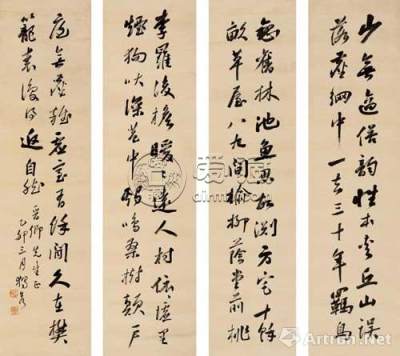 少無適俗韻性本愛丘山誤
落塵網中一去三十年羈鳥
戀舊林池魚思故淵方宅十餘
畝草屋八九間榆柳蔭堂前桃
李羅後檐曖〻遠人村依〻墟里
煙狗吠深巷中雞鳴桑樹顛戶
庭無塵雜虛室有餘閒久在樊
籠裏復得返自然
先生正
乙卯三月
Artron.Net